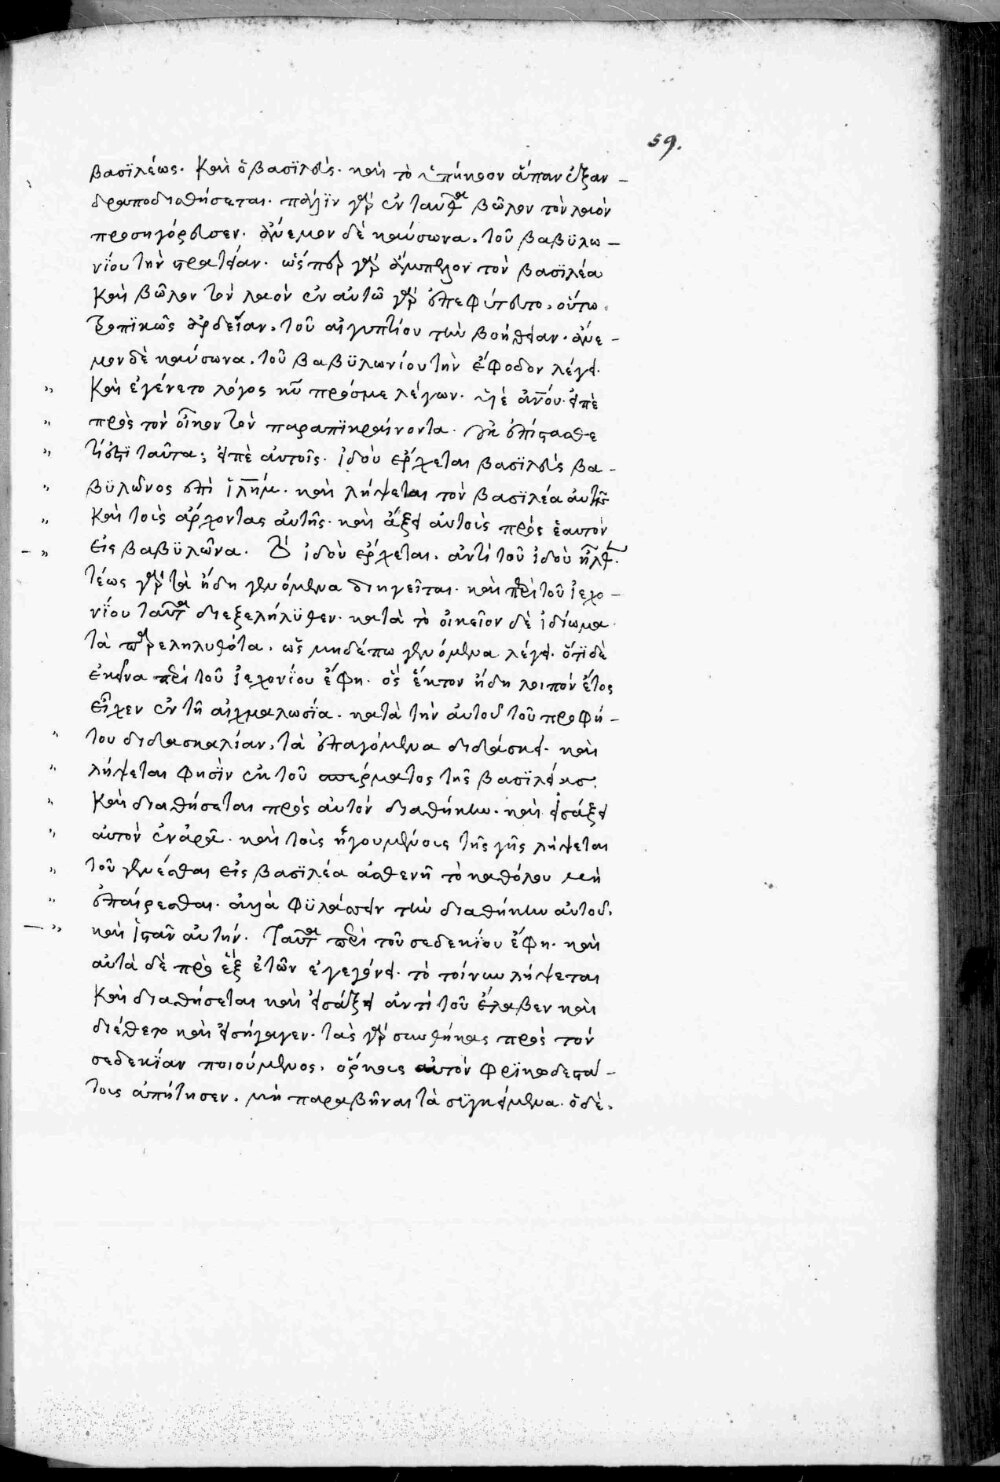 59.
βασϊλέως. Καὶ ὁ βασϊλεὺς. καὶ τὸ ὑπήκοον ἅπαν ἐξαν-
δραποδισθήσεται. πάλϊν γὰρ ἐνταῦθα βῶλον τὸν λαὸν
προσηγόρευσεν. ἄνεμον δὲ καύσωνα. τοῦ βαβϋλω-
νΐου τὴν στρατείαν. ὥσπερ γὰρ ἄμπελον τὸν βασϊλέα
Καὶ βῶλον τὸν λαὸν ἐν αὐτῶ γὰρ ἐπεφύτευτο. οὕτω
τροπϊκῶς ἀρδείαν. τοῦ αἰγυπτίου τὴν βοήθειαν. ἄνε-
μον δὲ καύσωνα. τοῦ βαβϋλωνίου τὴν ἔφοδον λέγει.
" Καὶ ἐγένετο λόγος κυ πρός με λέγων. υἱὲ ανου. εἰπὲ
" πρὸς τὸν οἶκον τὸν παραπϊκραίνοντα. οὐκ ἐπίστασθε
" τί ἐστϊ ταῦτα; εἰπὲ αὐτοῖς. ἰδοὺ ἔρχεται βασϊλεὺς βα-
" βϋλῶνος ἐπὶ ἱλημ. καὶ λήψεται τὸν βασϊλέα αὐτῆς
" Καὶ τοὺς ἄρχοντας αὐτῆς. καὶ ἄξει αὐτοὺς πρὸς ἑαυτὸν
— " εἰς βαβϋλῶνα. Τὸ ἰδοὺ ἔρχεται. ἀντὶ τοῦ ἰδοὺ ἦλθεν.
τέως γὰρ τὰ ἤδη γενόμενα διηγεῖται. καὶ περὶ τοῦ ἰεχο-
νΐου ταῦτα διεξελήλϋθεν. κατὰ τὸ οἰκεῖον δὲ ἰδίωμα
τὰ παρεληλυθότα. ὡς μηδέπω γενόμενα λέγει. ὅτϊ δὲ
ἐκεῖνα περὶ τοῦ ἰεχονΐου ἔφη. ὃς ἕκτον ἤδη λοιπὸν ἔτος
εἶχεν ἐν τῆ αἰχμαλωσία. κατὰ τὴν αὐτοῦ τοῦ προφή-
" του διδασκαλίαν. τὰ ἐπαγόμενα διδάσκει. καὶ
" λήψεται φησὶν ἐκ τοῦ σπέρματος τῆς βασϊλείας.
" Καὶ διαθήσεται πρὸς αὐτὸν διαθήκην. καὶ εἰσάξει
" αὐτὸν ἐν ἀρᾶ. καὶ τοὺς ἡγουμένους τῆς γῆς λήψεται
" τοῦ γενέσθαι εἰς βασϊλέα ἀσθενῆ τὸ καθόλου μὴ
" ἐπαίρεσθαι. ἀλλὰ φϋλάσσειν τὴν διαθήκην αὐτοῦ.
— " καὶ ἱστᾶν αὐτήν. Ταῦτα περὶ τοῦ σεδεκίου ἔφη. καὶ
αὐτὰ δὲ πρὸ ἓξ ἐτῶν ἐγεγόνει. τὸ τοίνυν λήψεται
Καὶ διαθήσεται καὶ εἰσάξει ἀντὶ τοῦ ἔλαβεν καὶ
διέθετο καὶ εἰσήγαγεν. τὰς γὰρ συνθήκας πρὸς τὸν
σεδεκίαν ποιούμενος. ὅρκους αὐτὸν φρϊκωδεστά-
τους ἀπήτησεν. μὴ παραβῆναι τὰ συγκείμενα. ὁ δὲ.